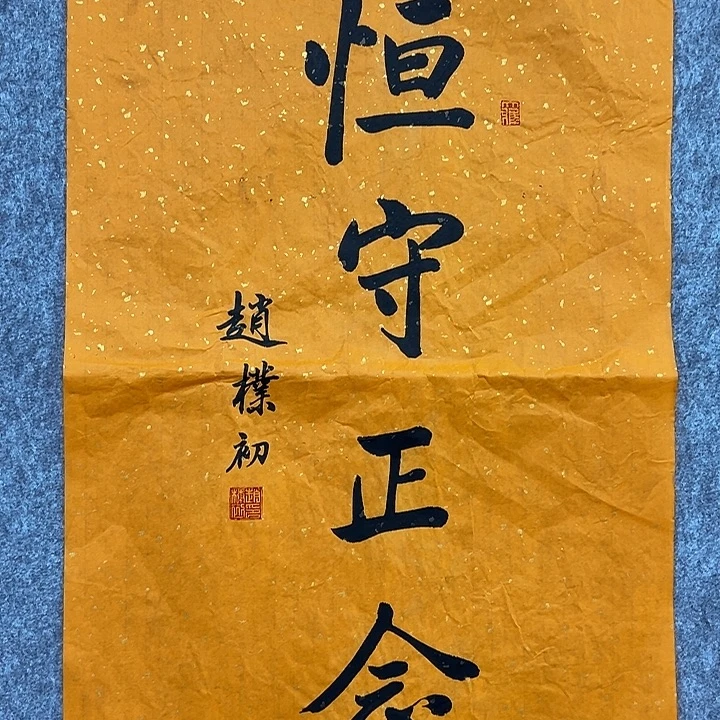 恒守正念
趙樸初